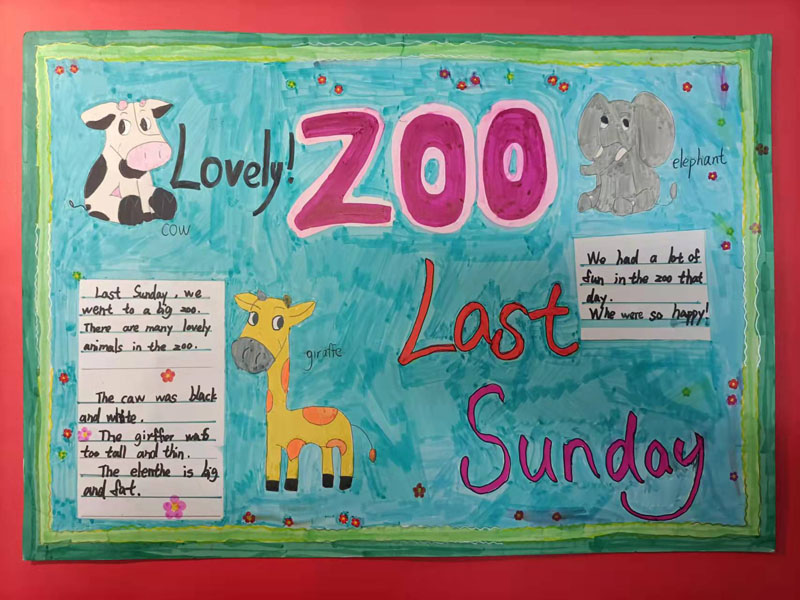 Lovely!
ZOO
cow
elephant
Last
Sunday
giraffe
Last Sunday, we
went to a big zoo.
There are many lovely
animals in the zoo.
The caw was black
and white.
The girffer was
too tall and thin.
The elenthe is big
and fart.
We had a lot of
fun in the zoo that
day.
Whe were so happy!